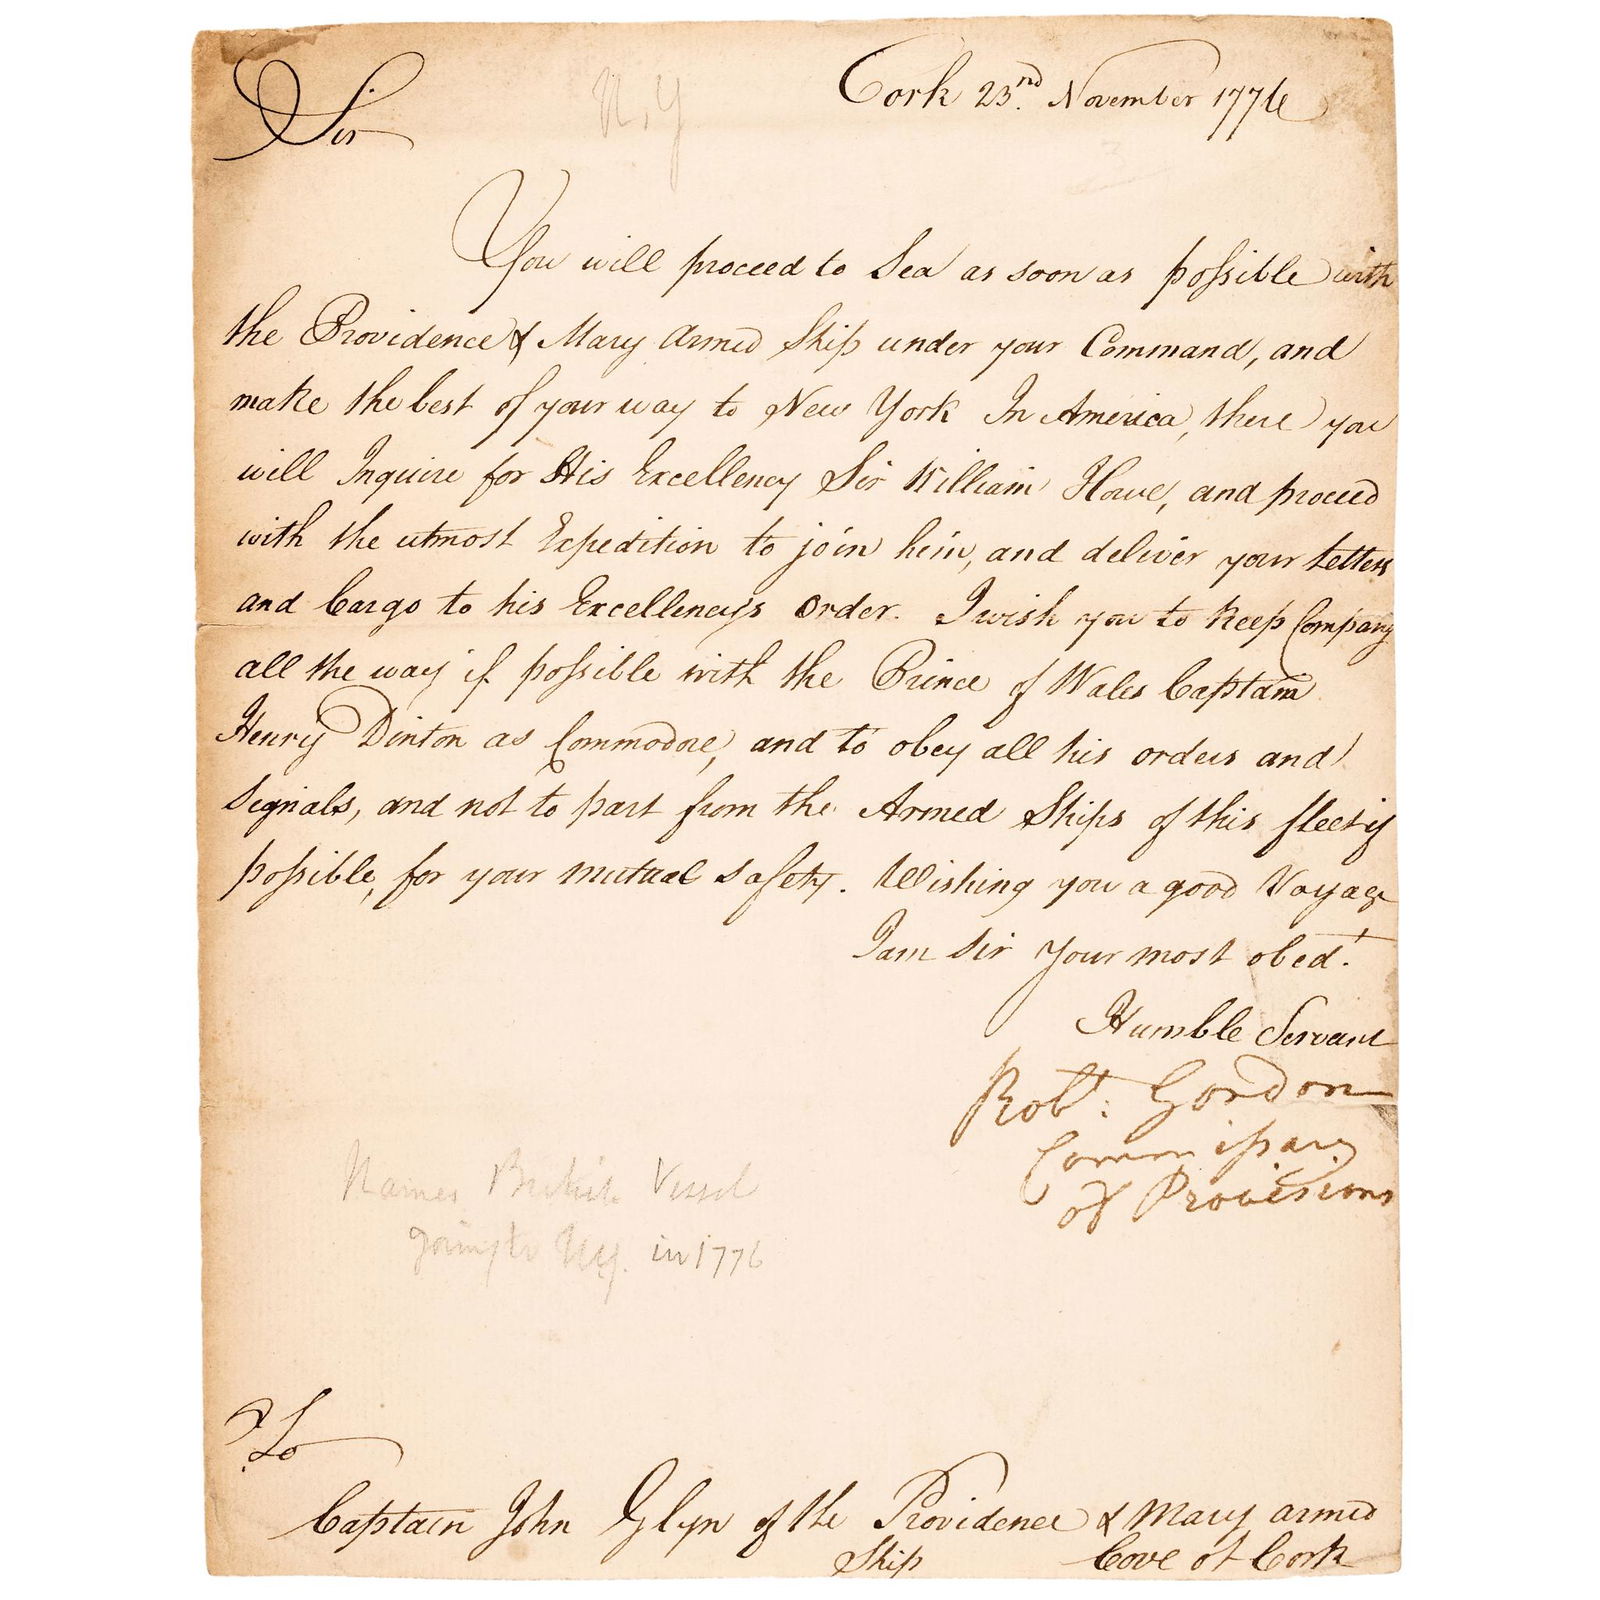 Sir
N.Y
Cork 23.rd November 1776
3
You will proceed to Sea as soon as possible with
the Providence & Mary Armed Ship under your Command, and
make the best of your way to New York In America, there you
will Inquire for His Excellency Sir William Howe, and proceed
with the utmost Expedition to join him, and deliver your Letters
and Cargo to his Excellencys Order. I wish you to keep Company
all the way if possible with the Prince of Wales Captain
Henry Dinton as Commodore, and to obey all his orders and
Signals, and not to part from the Armed Ships of this fleet if
possible, for your mutual safety. Wishing you a good Voyage
I am Sir Your most obed.t
Humble Servant
Robt: Gordon
Commissary
of Provisions
Names British Vessel
going to N.Y. in 1776
To
Captain John Glyn of the Providence & Mary armed
Ship Cove of Cork